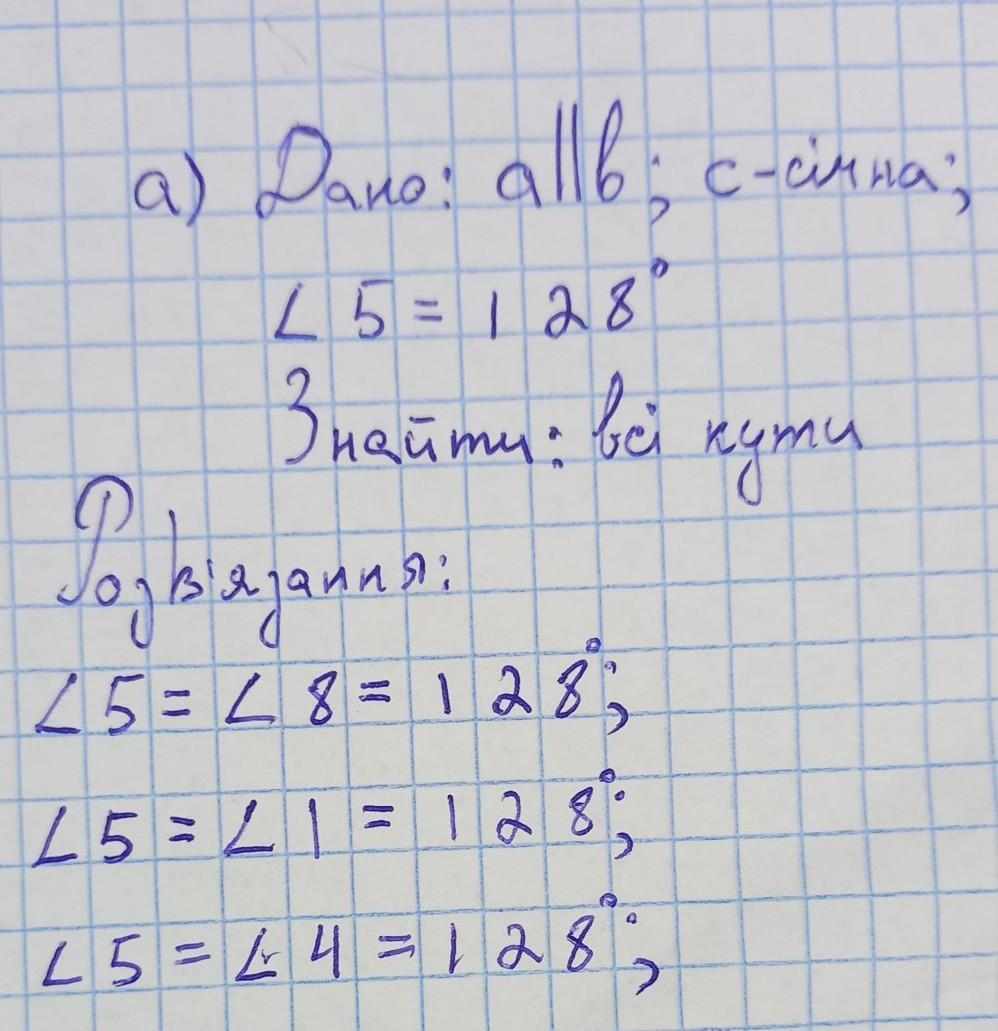 а) Дано: a||b; c-січна;
∠5=128°
Знайти: всі кути
Розв'язання:
∠5=∠8=128°;
∠5=∠1=128°;
∠5=∠4=128°;